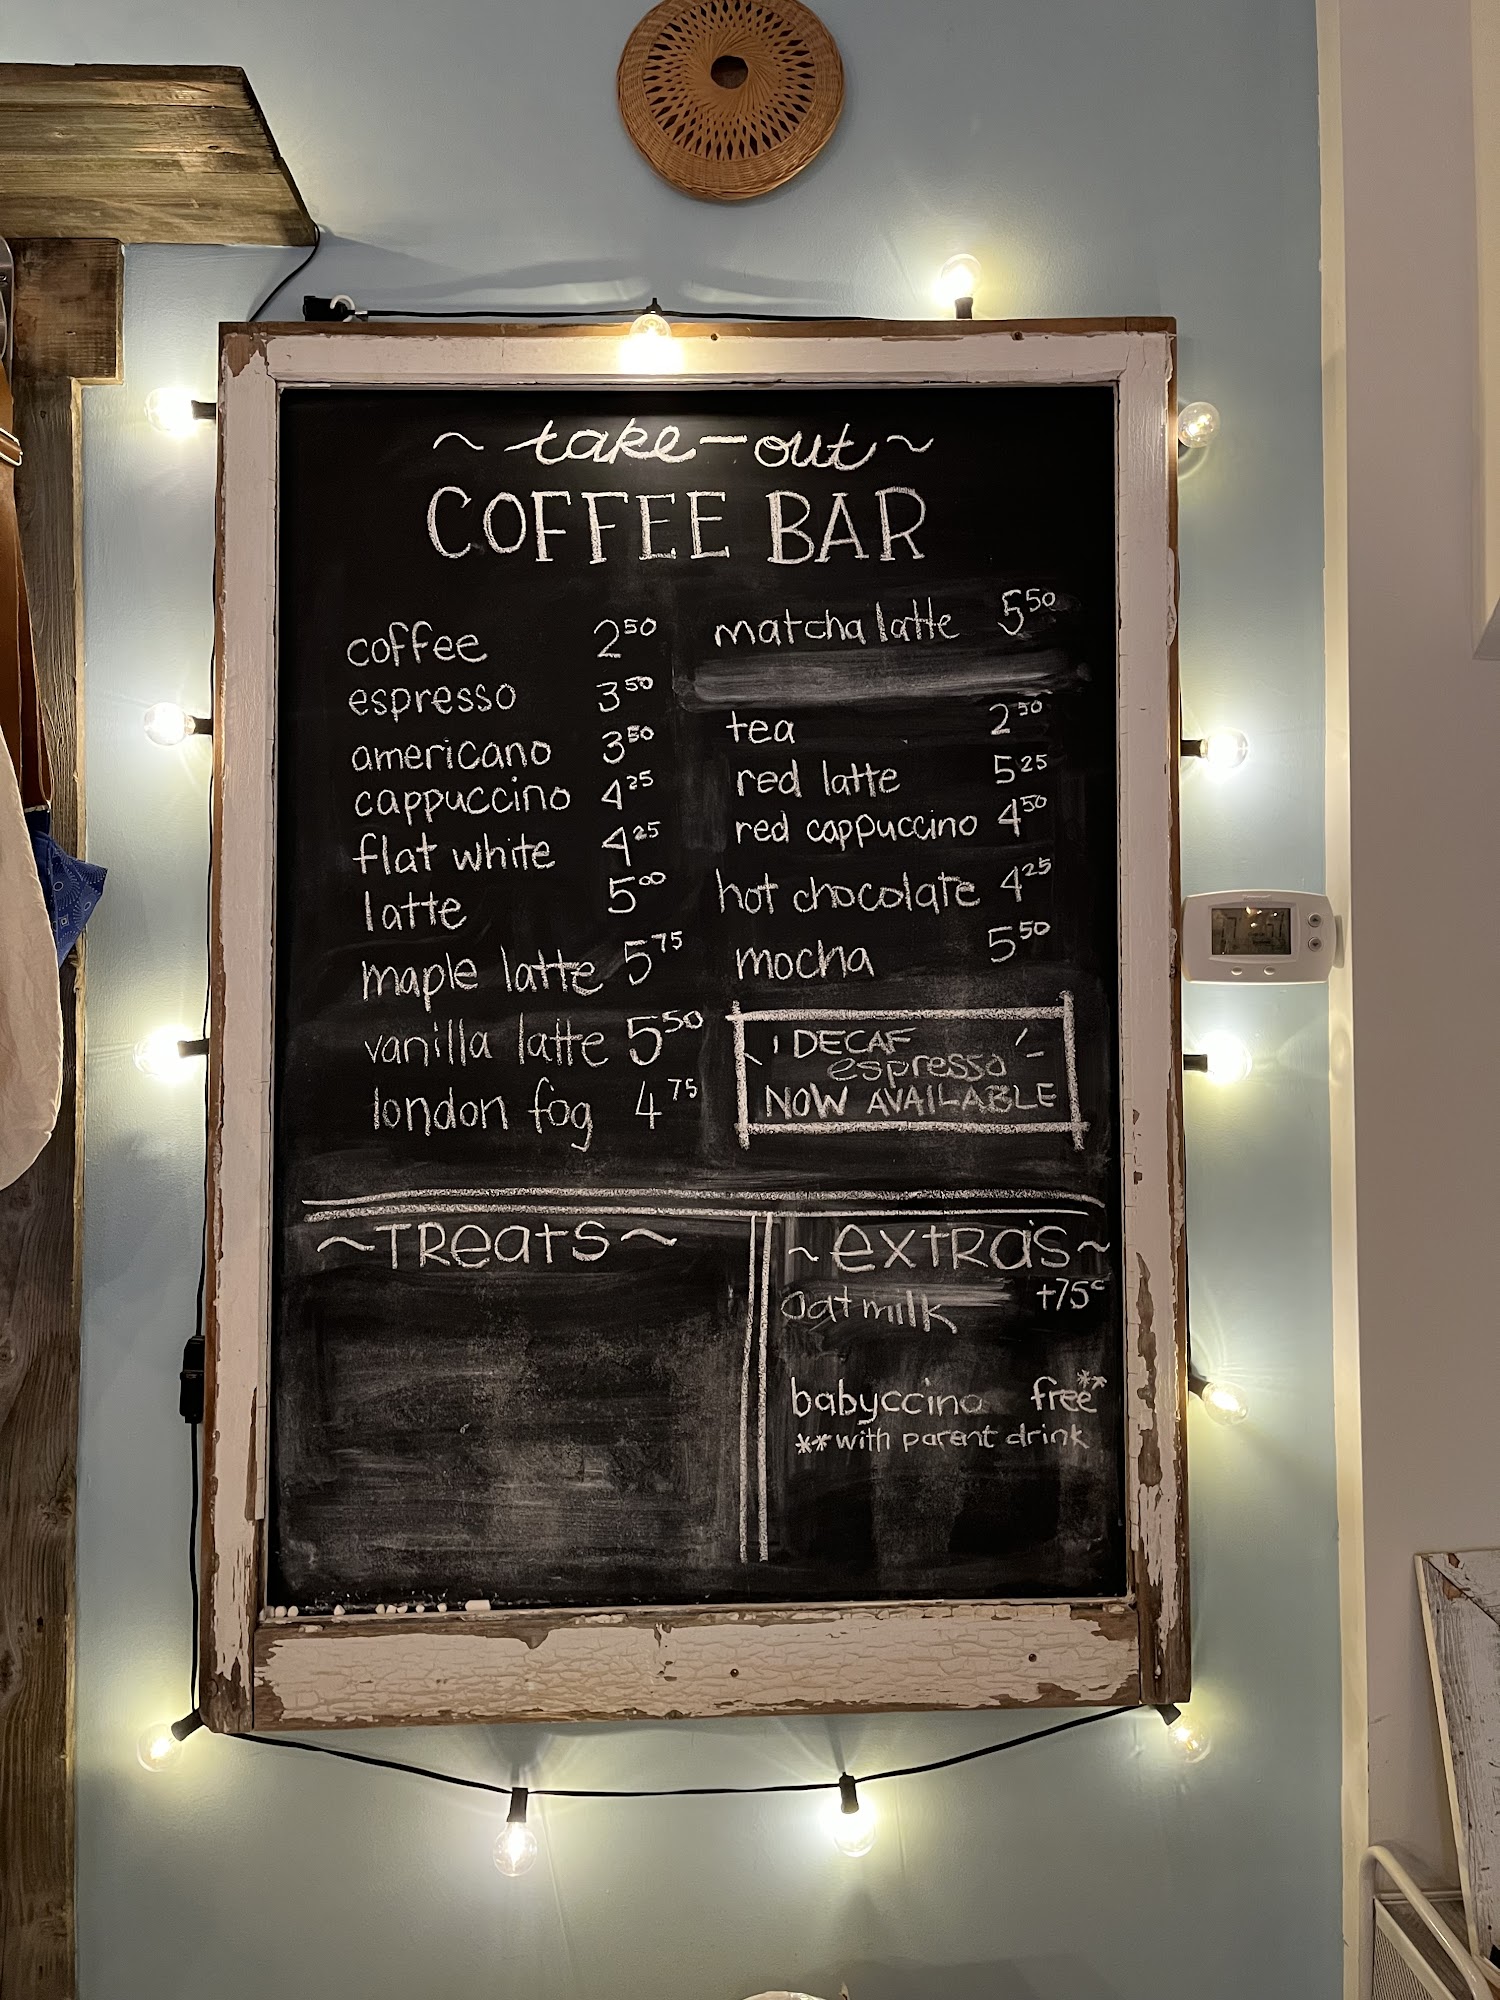 ~ take-out ~
COFFEE BAR
coffee 2 50
espresso 3 50
americano 3 50
cappuccino 4 25
flat white 4 25
latte 5 00
maple latte 5 75
vanilla latte 5 50
london fog 4 75
matcha latte 5 50
tea 2 50
red latte 5 25
red cappuccino 4 50
hot chocolate 4 25
mocha 5 50
DECAF
espresso
NOW AVAILABLE
~TReatS~
~extRa's~
oat milk +75c
babyccino free**
**with parent drink